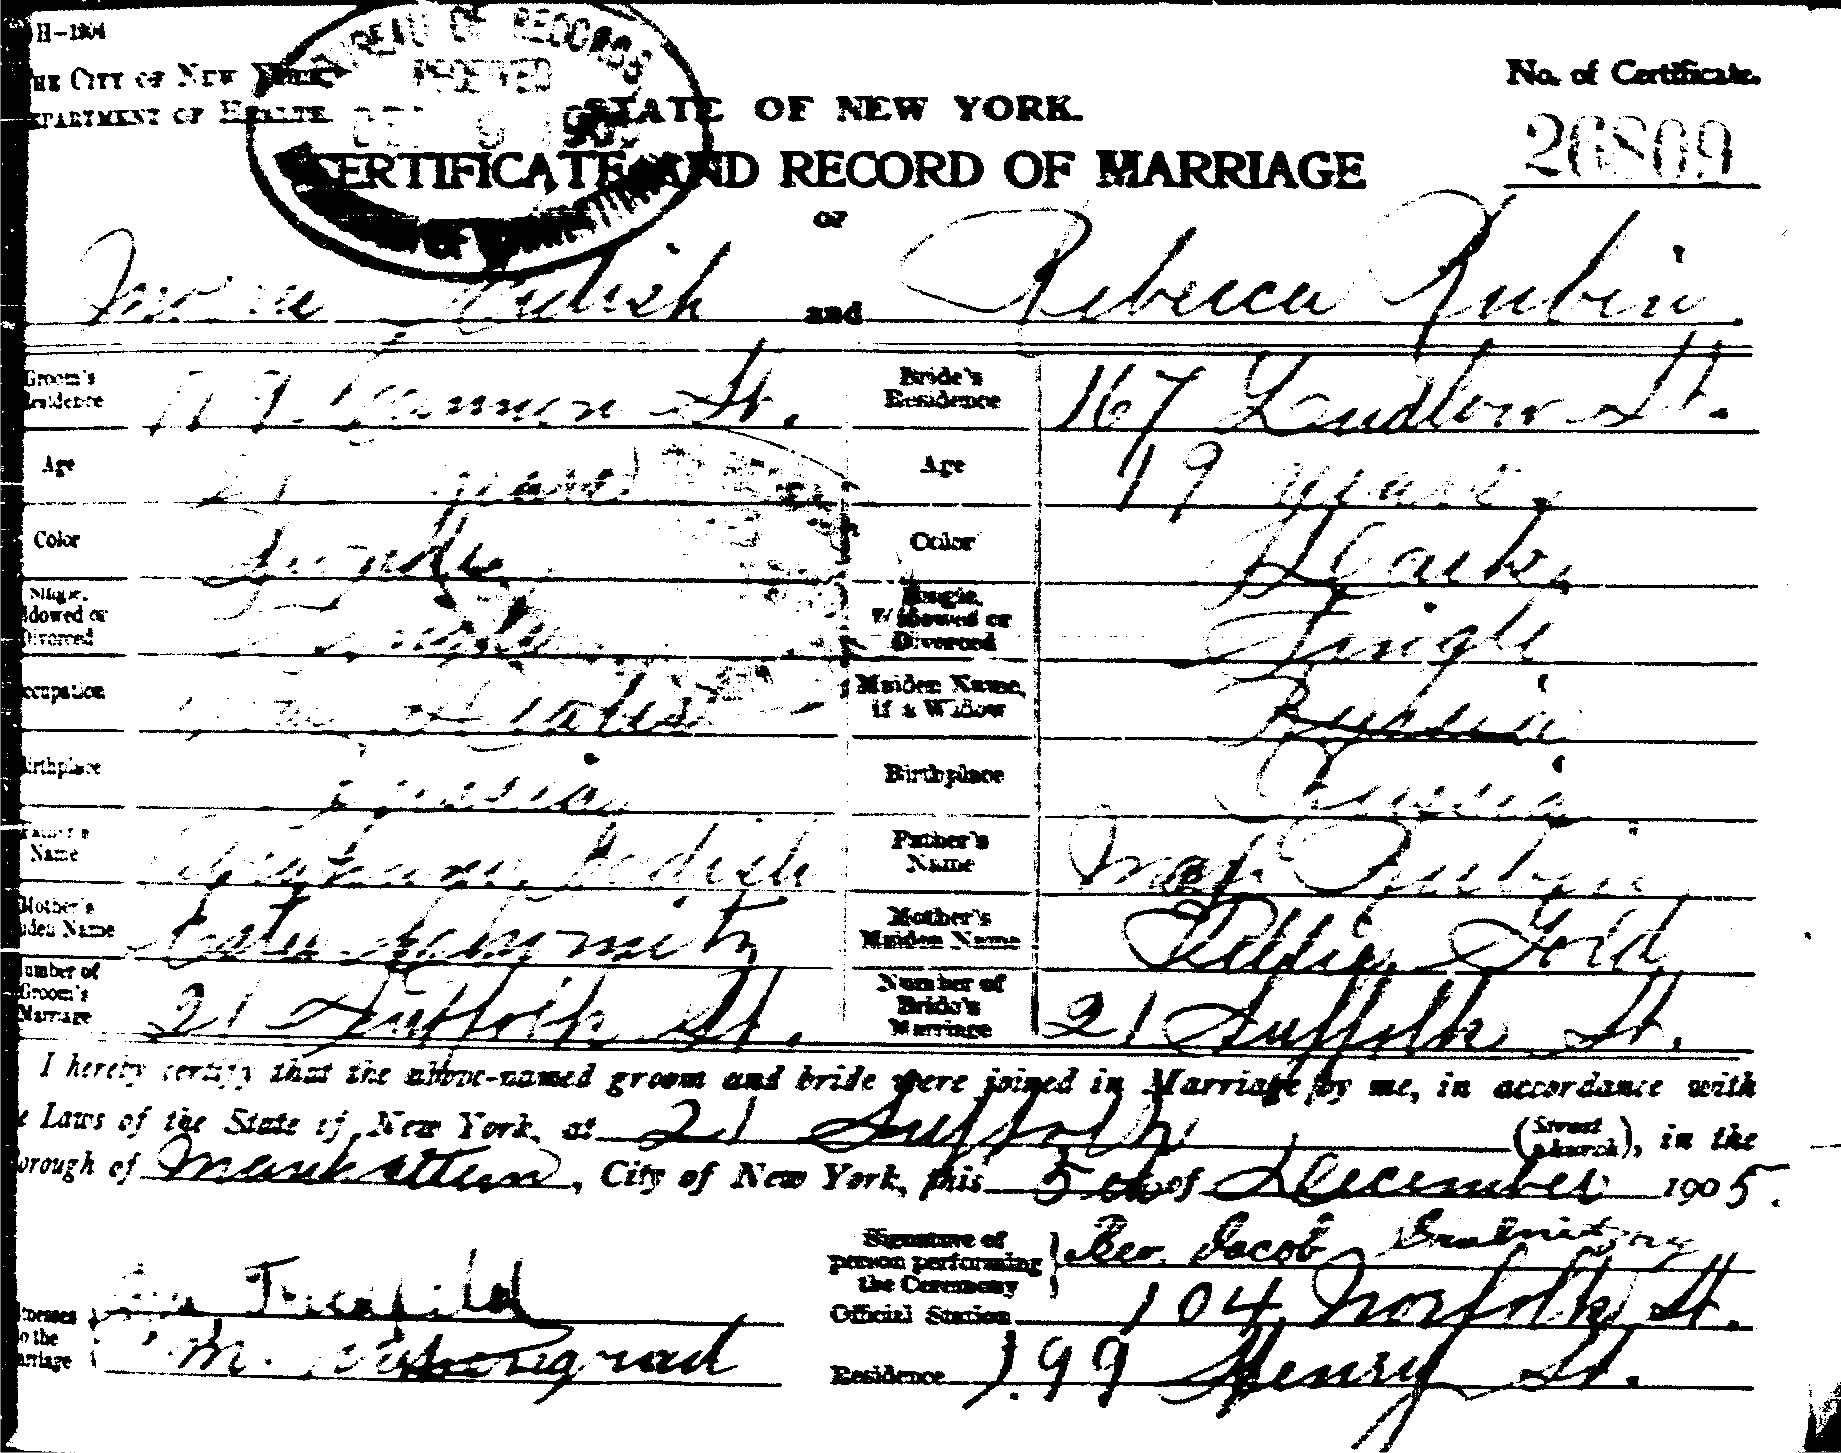 H-1804
THE CITY OF NEW YORK
DEPARTMENT OF HEALTH.
BUREAU OF RECORDS
RECEIVED
DEC 9 1905
No. of Certificate.
26809
STATE OF NEW YORK.
CERTIFICATE AND RECORD OF MARRIAGE
OF
Morris Kadish and Rebecca Rubin.
Groom's Residence Cannon St. Bride's Residence 167 Ludlow St.
Age 21 years Age 19 years.
Color Color
Single, Widowed or Divorced Single Single, Widowed or Divorced Single
Occupation Maiden Name, if a Widow Russia
Birthplace Russia Birthplace Russia
Father's Name Kadish Father's Name Max Rubin
Mother's Maiden Name Ester Mother's Maiden Name Gold
Number of Groom's Marriage 21 Suffolk St. Number of Bride's Marriage 21 Suffolk St.
I hereby certify that the above-named groom and bride were joined in Marriage by me, in accordance with
the Laws of the State of New York, at 21 Suffolk (Street Church), in the
Borough of Manhattan, City of New York, this 5th of December 1905.
Signature of person performing the Ceremony Rev. Jacob
Official Station 104 Norfolk St.
Witnesses to the Marriage
M.
Residence 199 Henry St.